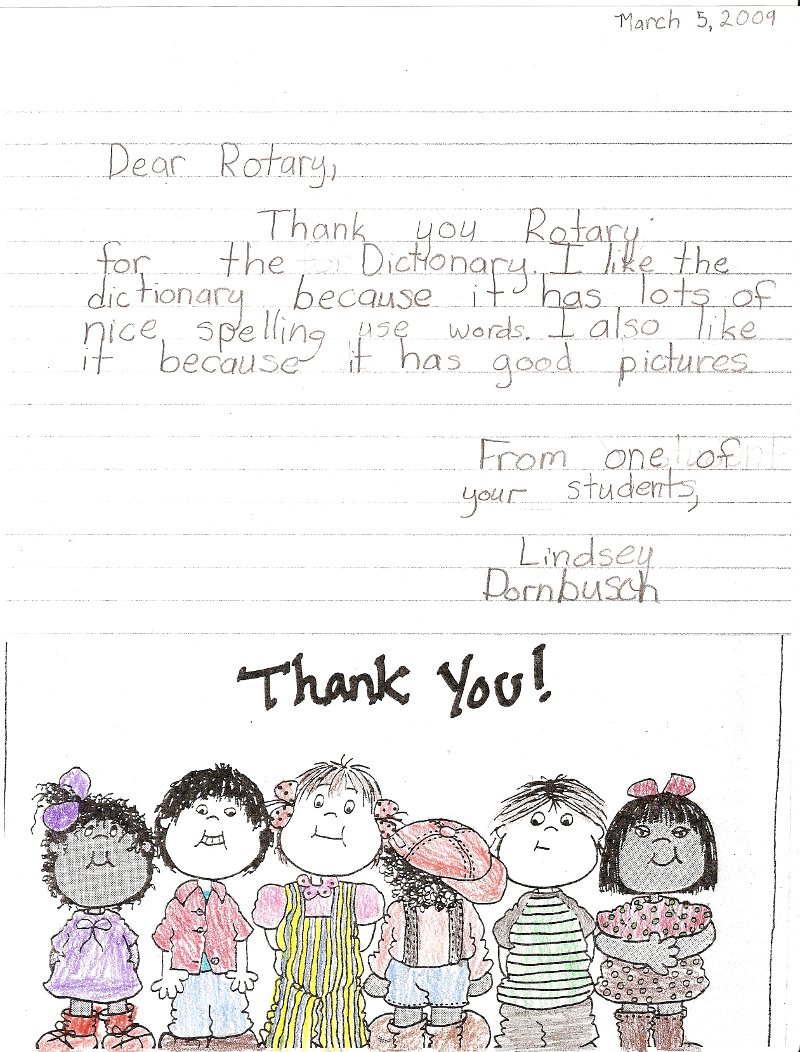 March 5, 2009
Dear Rotary,
Thank you Rotary
for the Dictionary. I like the
dictionary because it has lots of
nice spelling use words. I also like
it because it has good pictures
From one of
your students,
Lindsey
Dornbusch
Thank You!